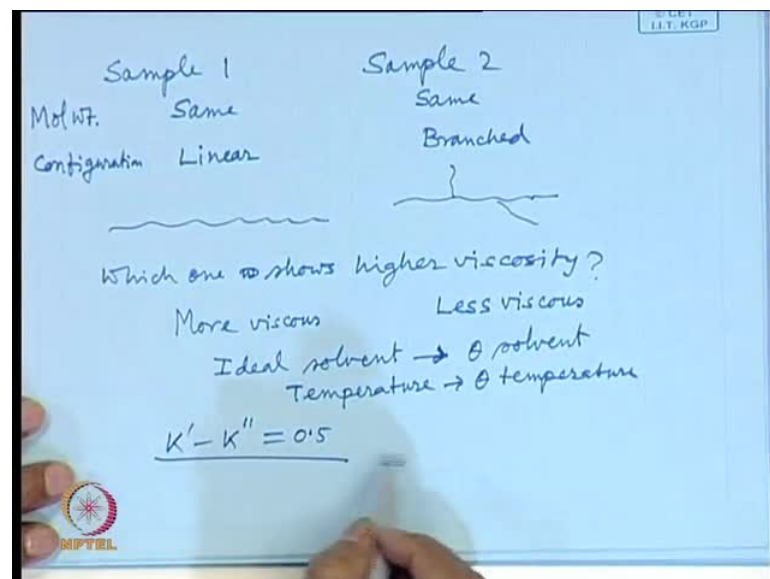 © CET
I.I.T. KGP
Sample 1 Sample 2
Mol wt. Same Same
Configuration Linear Branched
Which one shows higher viscosity?
More viscous Less viscous
Ideal solvent → θ solvent
Temperature → θ temperature
K' - K'' = 0.5
NPTEL